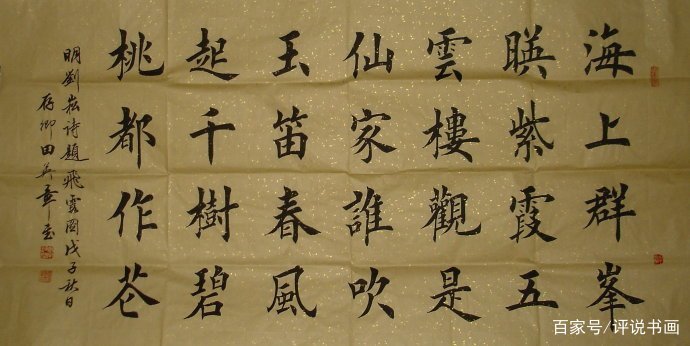 海上群峯
暎紫霞五
雲樓觀是
仙家誰吹
玉笛春風
起千樹碧
桃都作花
明劉崧诗題飛霞图戊子秋日
存卿田英章书
百家号/评说书画